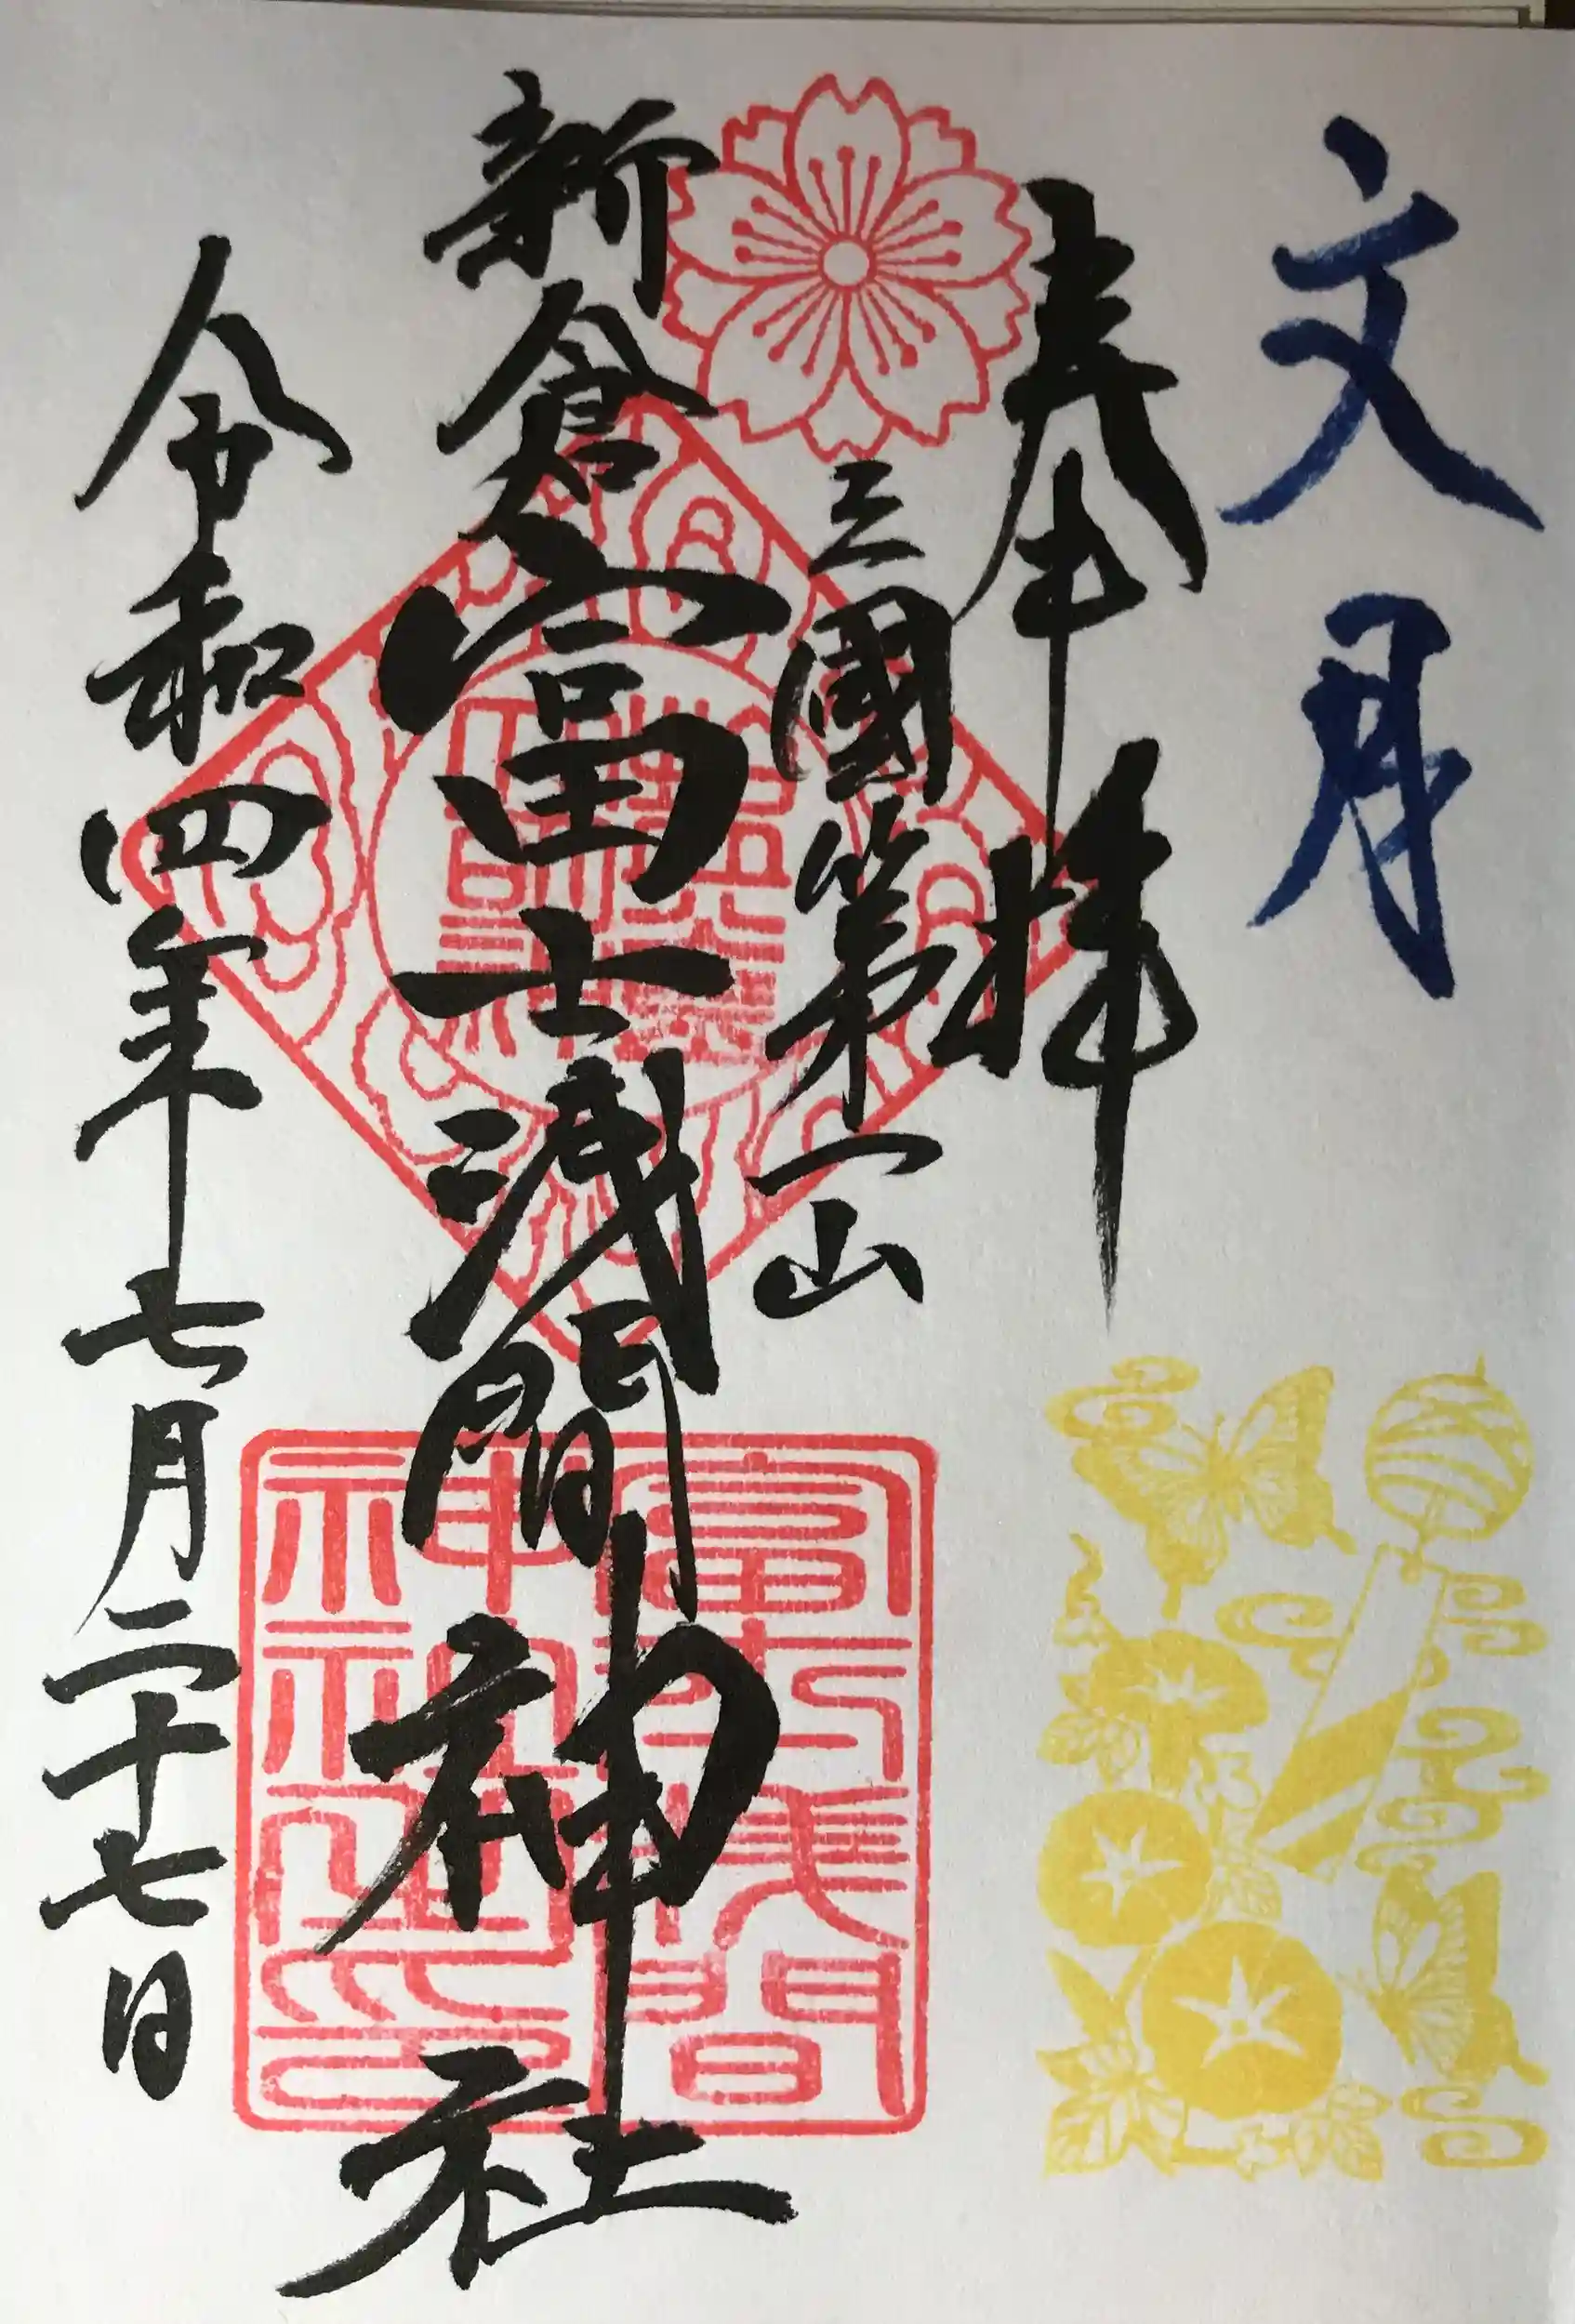 文月
奉拝
三國第一山
新倉富士浅間神社
令和四年七月二十七日
富士浅間
神社之印